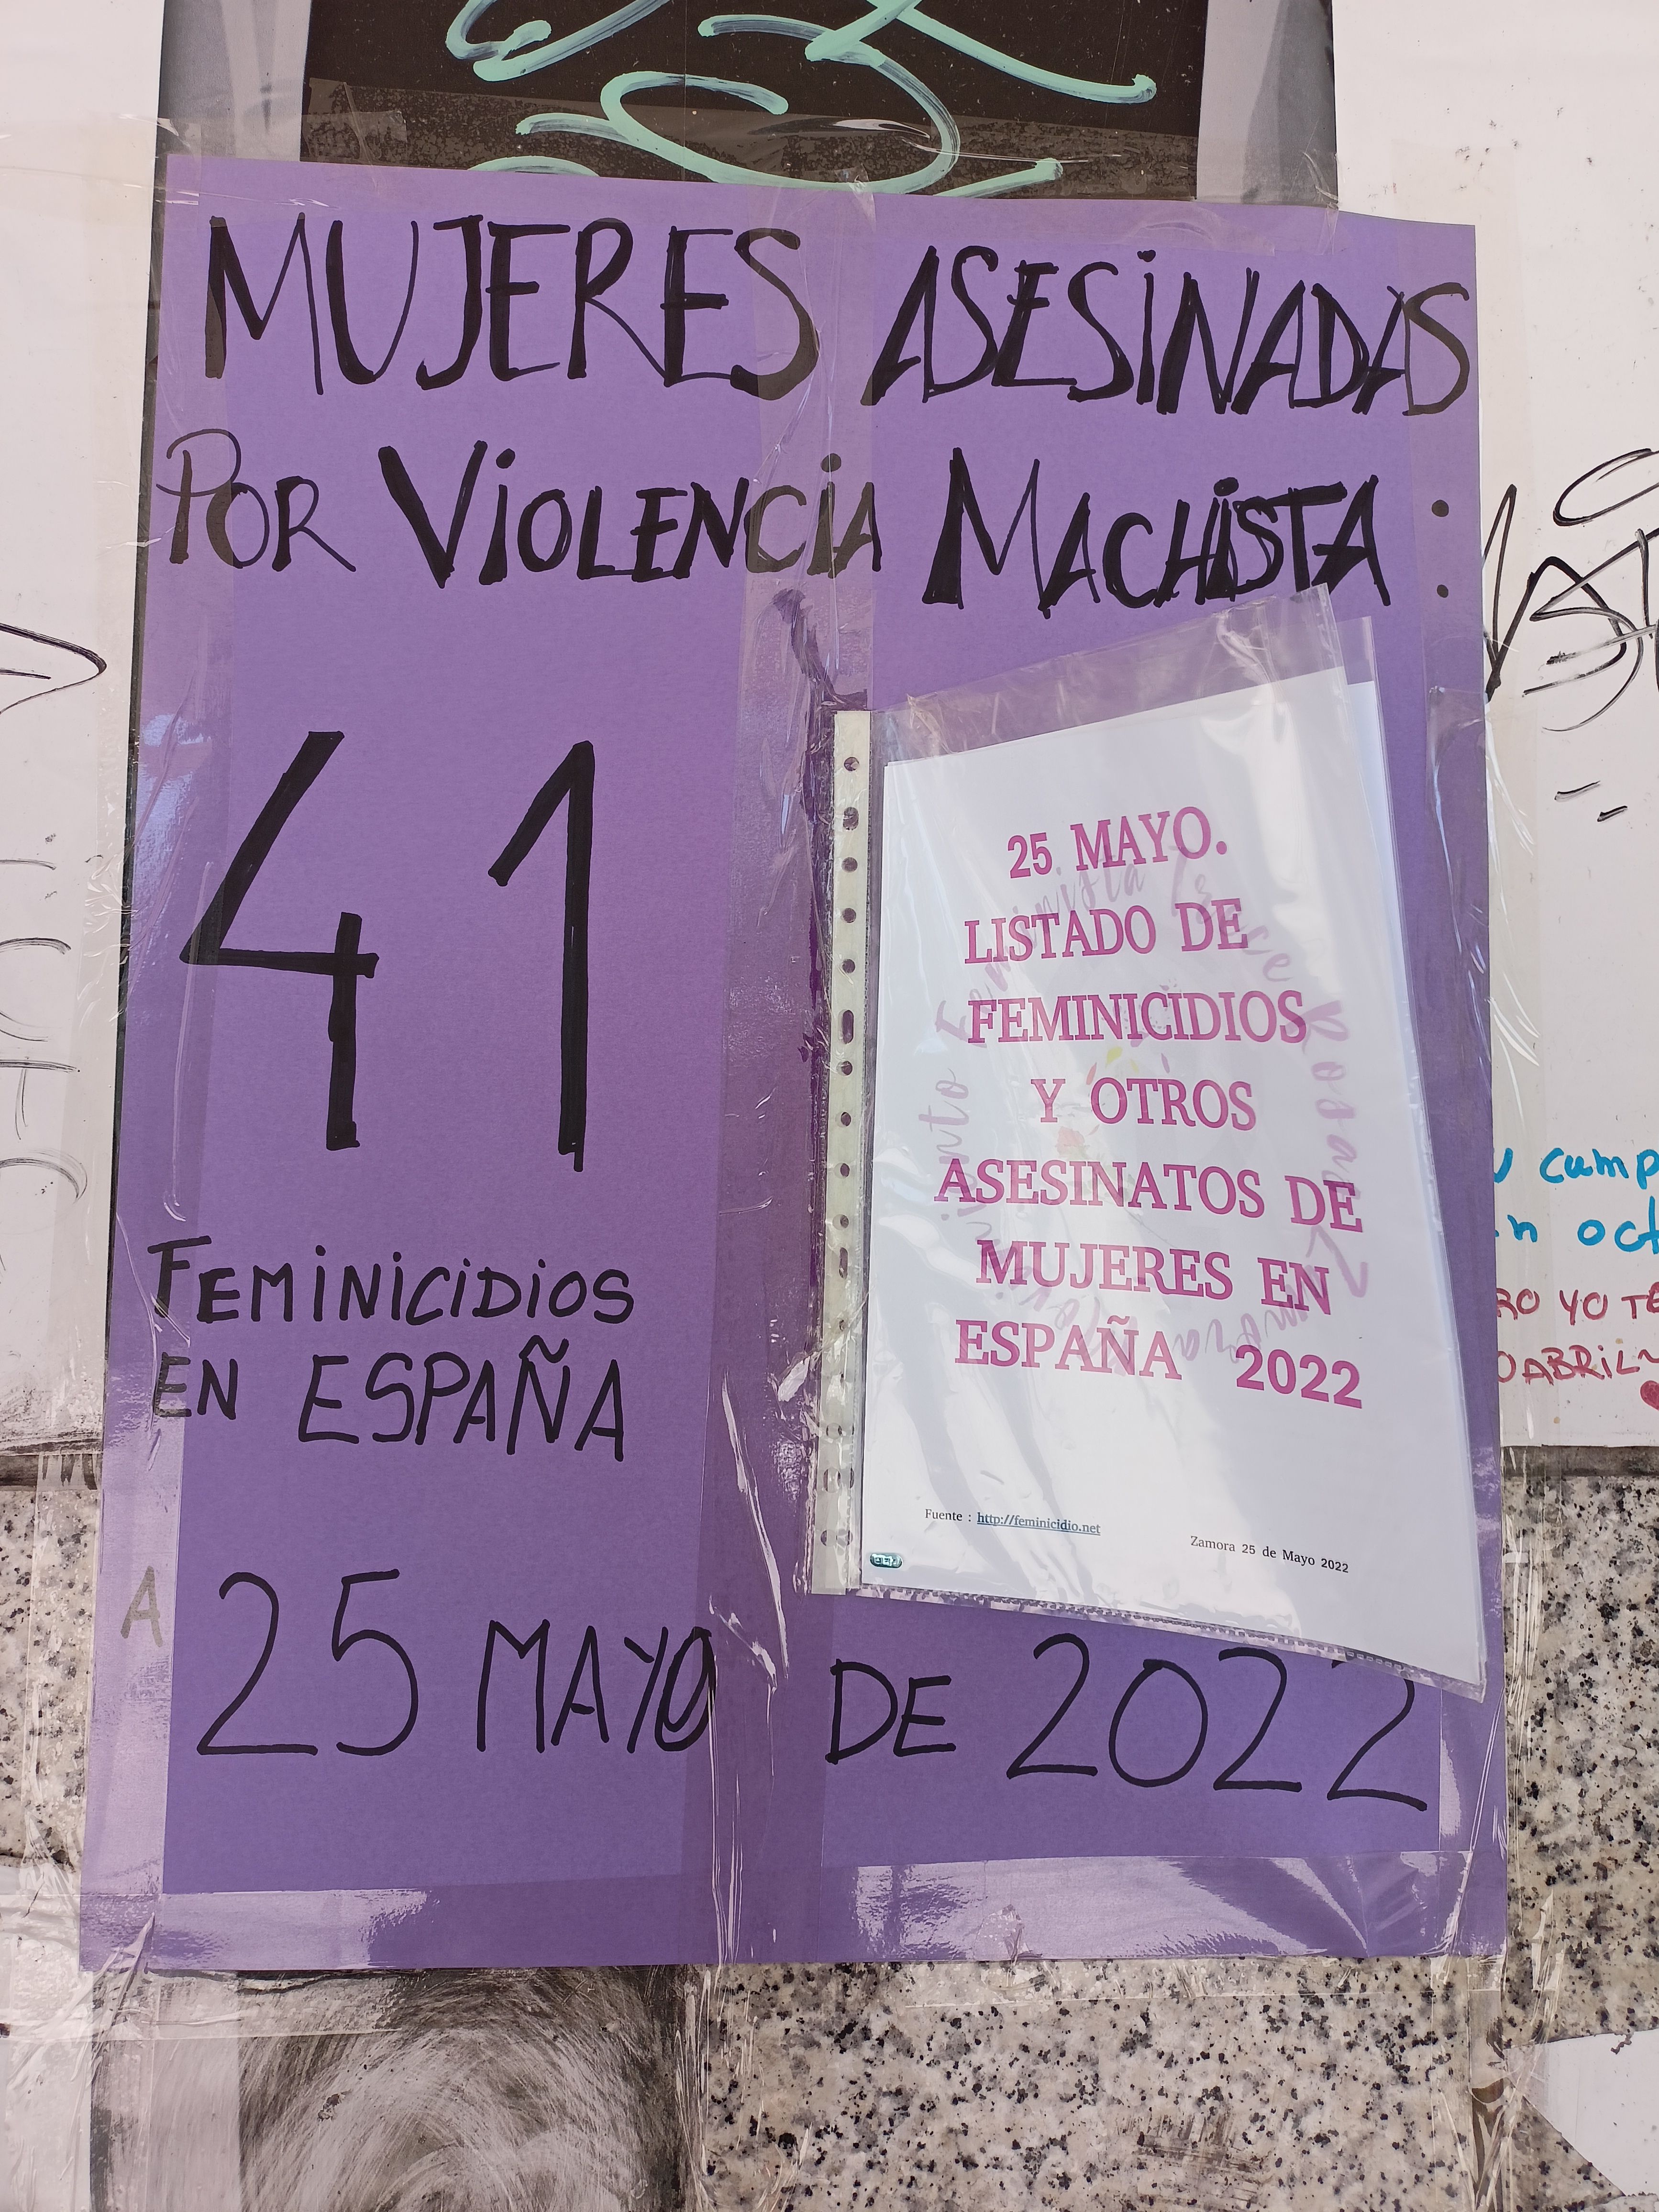 MUJERES ASESINADAS
POR VIOLENCIA MACHISTA :
41
FEMINICIDIOS
EN ESPAÑA
A 25 MAYO DE 2022
25 MAYO.
LISTADO DE
FEMINICIDIOS
Y OTROS
ASESINATOS DE
MUJERES EN
ESPAÑA 2022
Fuente : http://feminicidio.net
Zamora 25 de Mayo 2022
Movimiento Feminista Trece Rosas Zamora
cump
oct
YO TE
ABRIL~